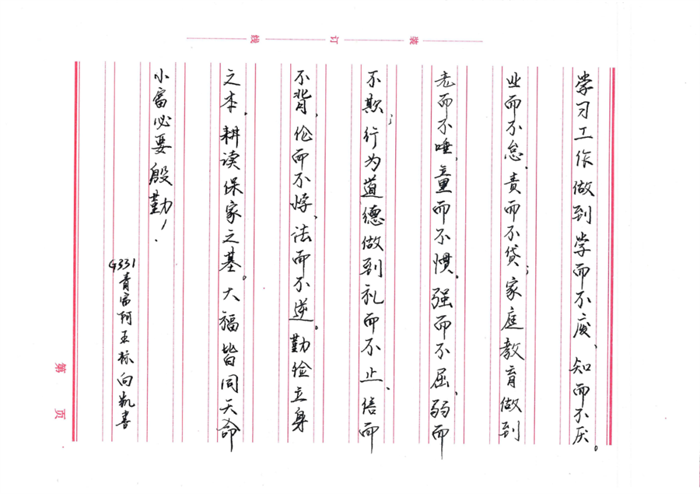 装订线
学习工作做到学而不废、知而不厌。
业而不怠、责而不贷；家庭教育做到
老而不唾、童而不惯、强而不屈、弱而
不欺；行为道德做到礼而不止、信而
不背、伦而不悖、法而不逆。勤俭立身
之本，耕读保家之基。大福皆同天命
小富必要殷勤！
G331青富阿王标向凯书
第 页